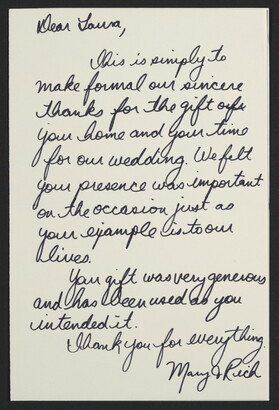 Dear Laura,
This is simply to
make formal our sincere
thanks for the gift of
your home and your time
for our wedding. We felt
your presence was important
on the occasion just as
your example is to our
lives.
Your gift was very generous
and has been used as you
intended it.
Thank you for everything.
Mary & Rich